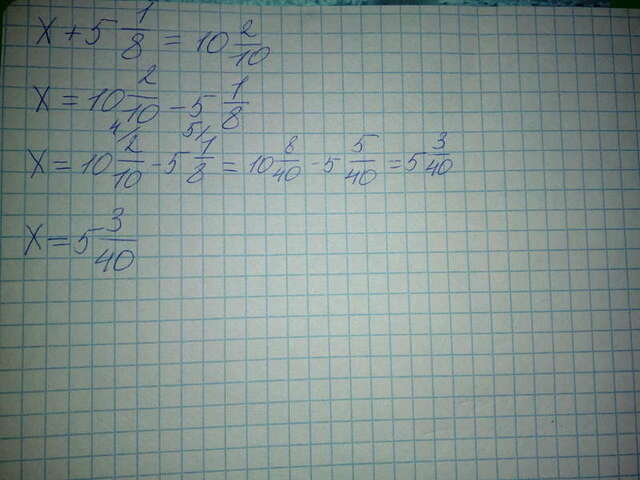 X + 5 1/8 = 10 2/10
X = 10 2/10 - 5 1/8
4/ 5/
X = 10 2/10 - 5 1/8 = 10 8/40 - 5 5/40 = 5 3/40
X = 5 3/40